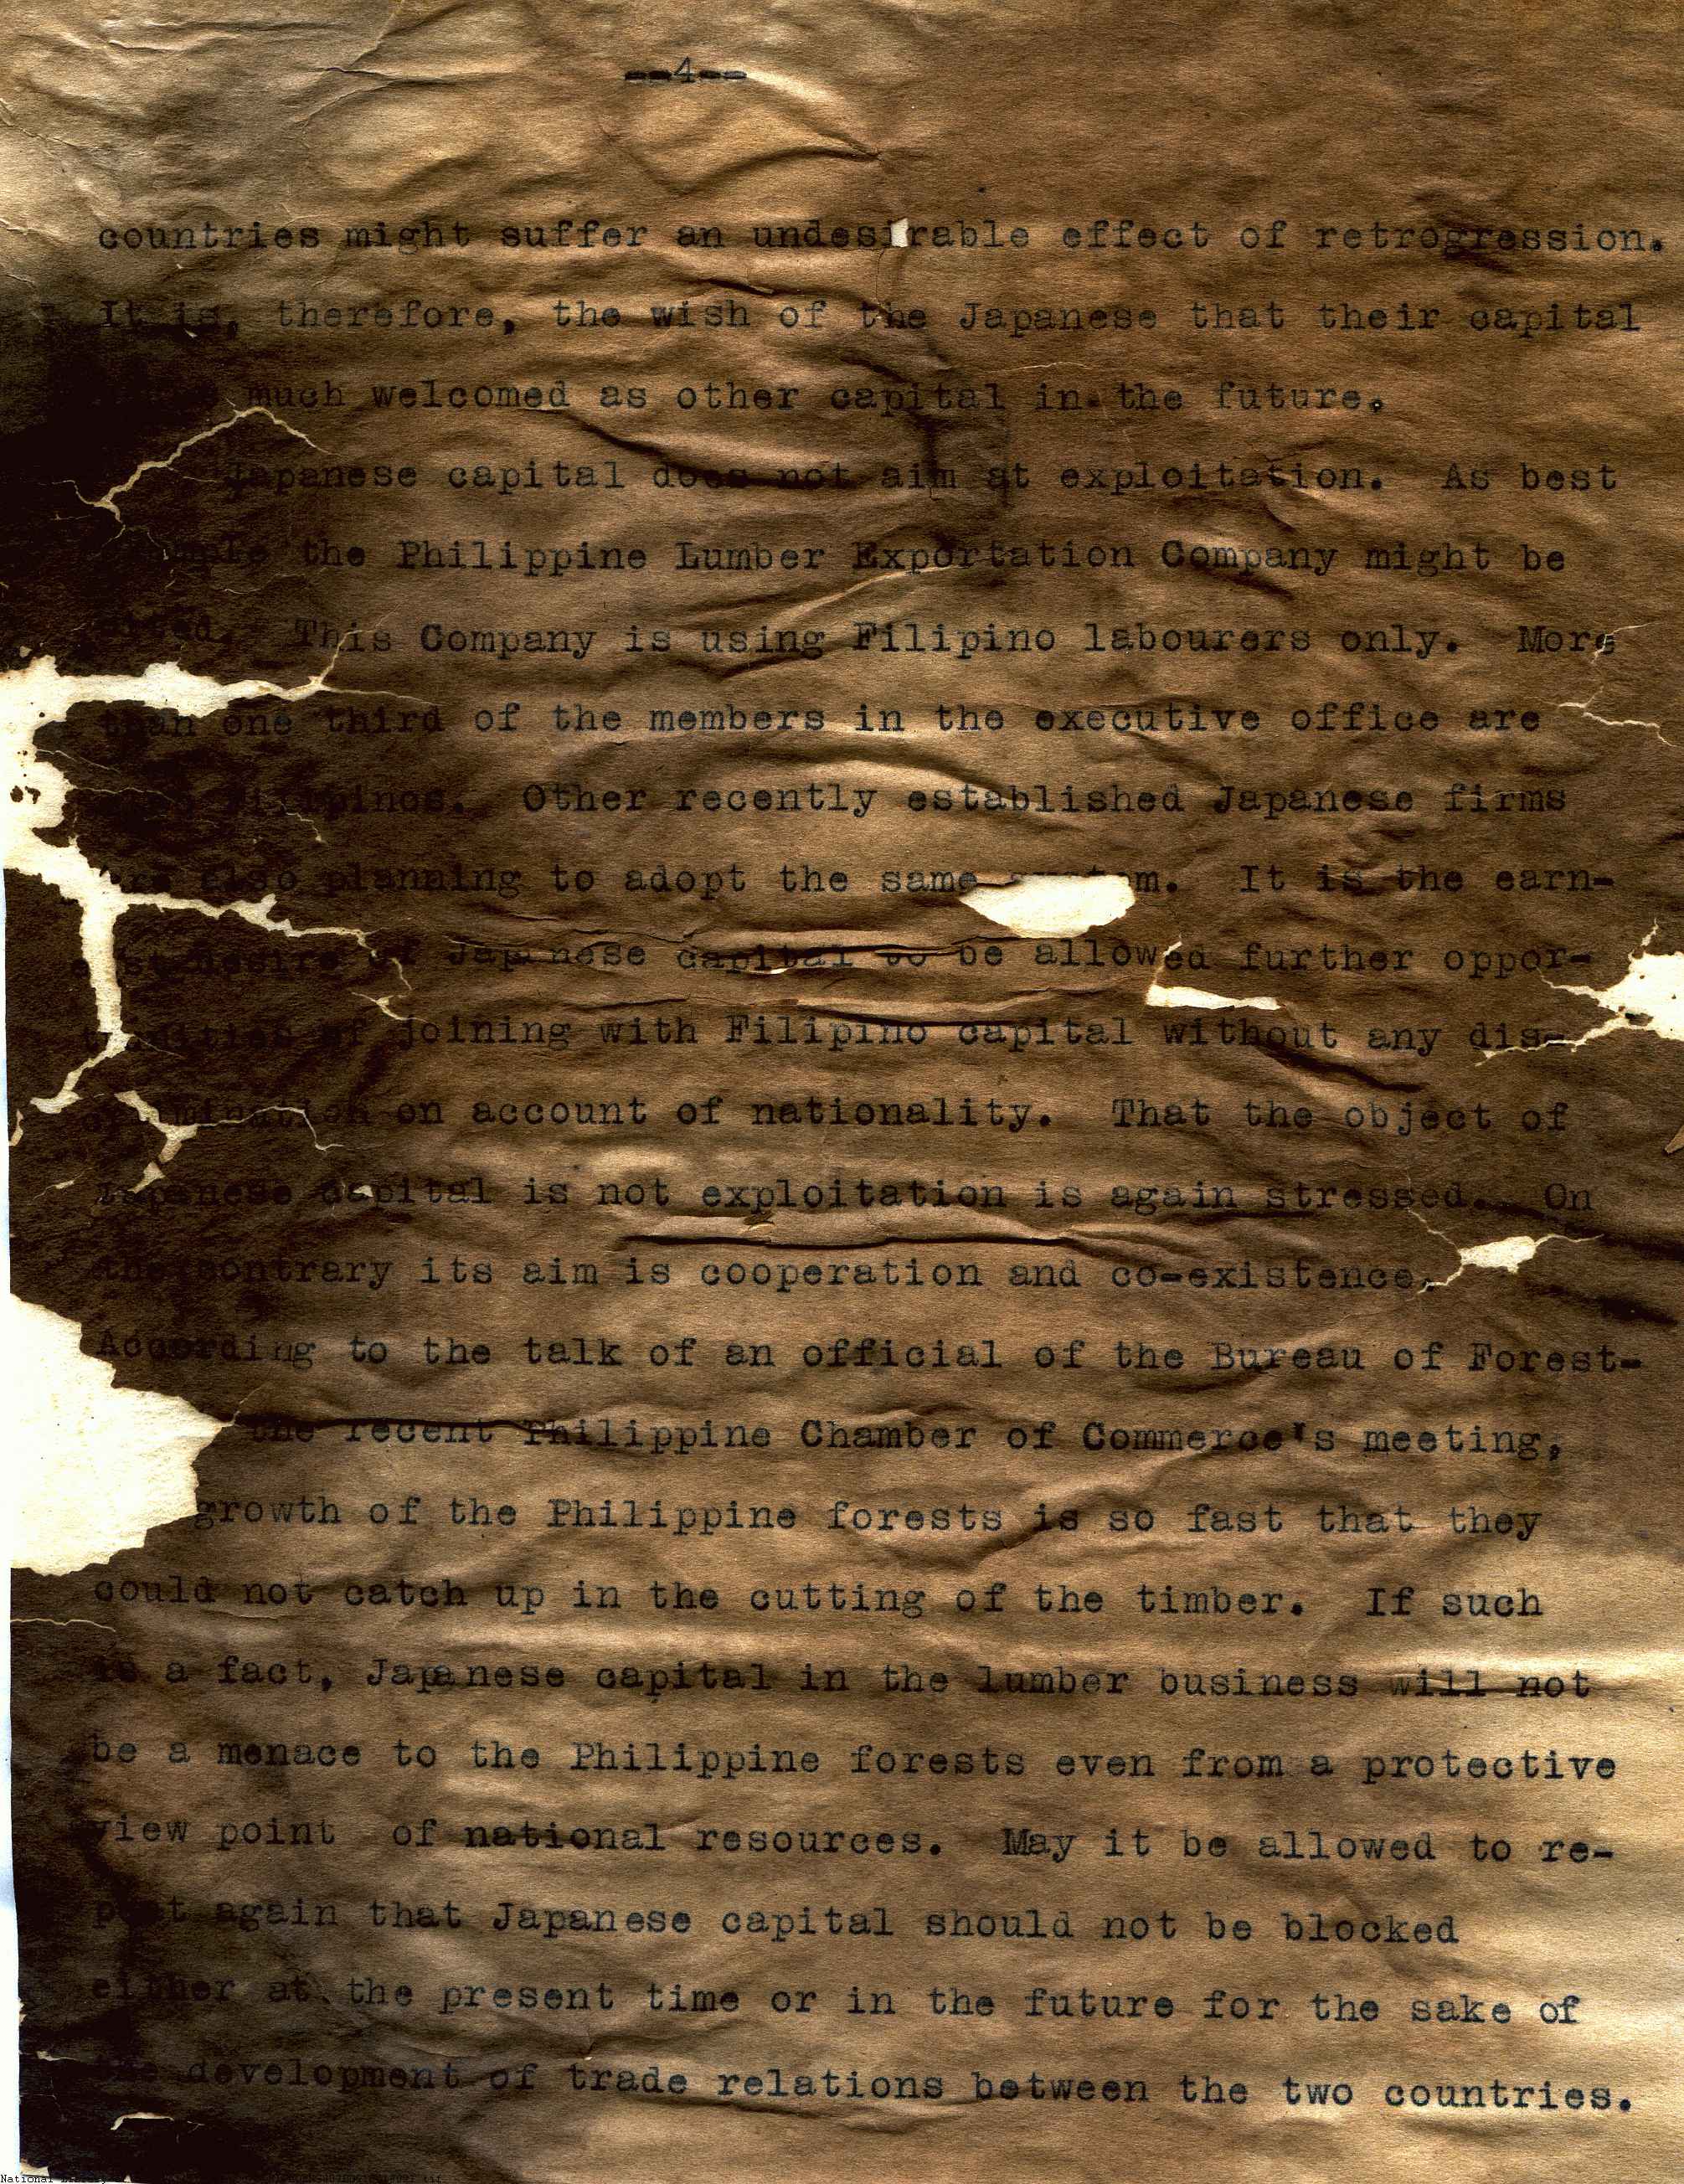 --4--
countries might suffer an undesirable effect of retrogression.
It is, therefore, the wish of the Japanese that their capital
much welcomed as other capital in the future.
Japanese capital does not aim at exploitation. As best
the Philippine Lumber Exportation Company might be
cited. This Company is using Filipino labourers only. More
than one third of the members in the executive office are
Filipinos. Other recently established Japanese firms
are also planning to adopt the same system. It is the earn-
est desire of Japanese capital to be allowed further oppor-
tunities of joining with Filipino capital without any dis-
crimination on account of nationality. That the object of
Japanese capital is not exploitation is again stressed. On
the contrary its aim is cooperation and co-existence.
According to the talk of an official of the Bureau of Forest-
the recent Philippine Chamber of Commerce's meeting,
growth of the Philippine forests is so fast that they
could not catch up in the cutting of the timber. If such
is a fact, Japanese capital in the lumber business will not
be a menace to the Philippine forests even from a protective
view point of national resources. May it be allowed to re-
peat again that Japanese capital should not be blocked
either at the present time or in the future for the sake of
the development of trade relations between the two countries.